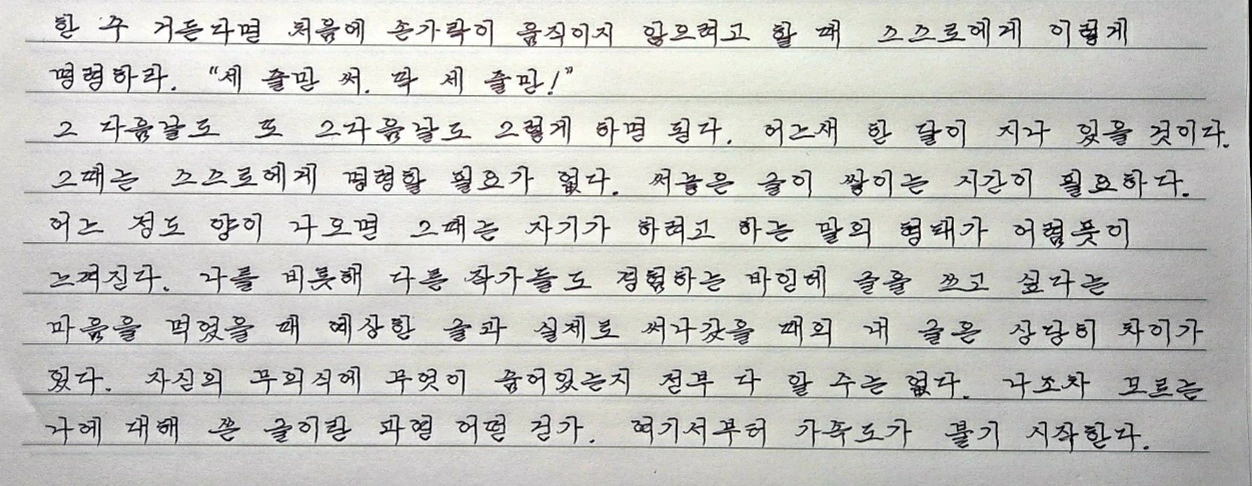 한 주 거든다면 처음에 손가락이 움직이지 않으려고 할 때 스스로에게 이렇게
명령하라. “세 줄만 써. 딱 세 줄만!”
그 다음날도 또 그다음날도 그렇게 하면 된다. 어느새 한 달이 지나 있을 것이다.
그때는 스스로에게 명령할 필요가 없다. 써놓은 글이 쌓이는 시간이 필요하다.
어느 정도 양이 나오면 그때는 자기가 하려고 하는 말의 형태가 어렴풋이
느껴진다. 나를 비롯해 다른 작가들도 경험하는 바인데 글을 쓰고 싶다는
마음을 먹었을 때 예상한 글과 실제로 써나갔을 때의 내 글은 상당히 차이가
있다. 자신의 무의식에 무엇이 숨어있는지 전부 다 알 수는 없다. 나조차 모르는
나에 대해 쓴 글이란 과연 어떤 건가. 여기서부터 가속도가 붙기 시작한다.